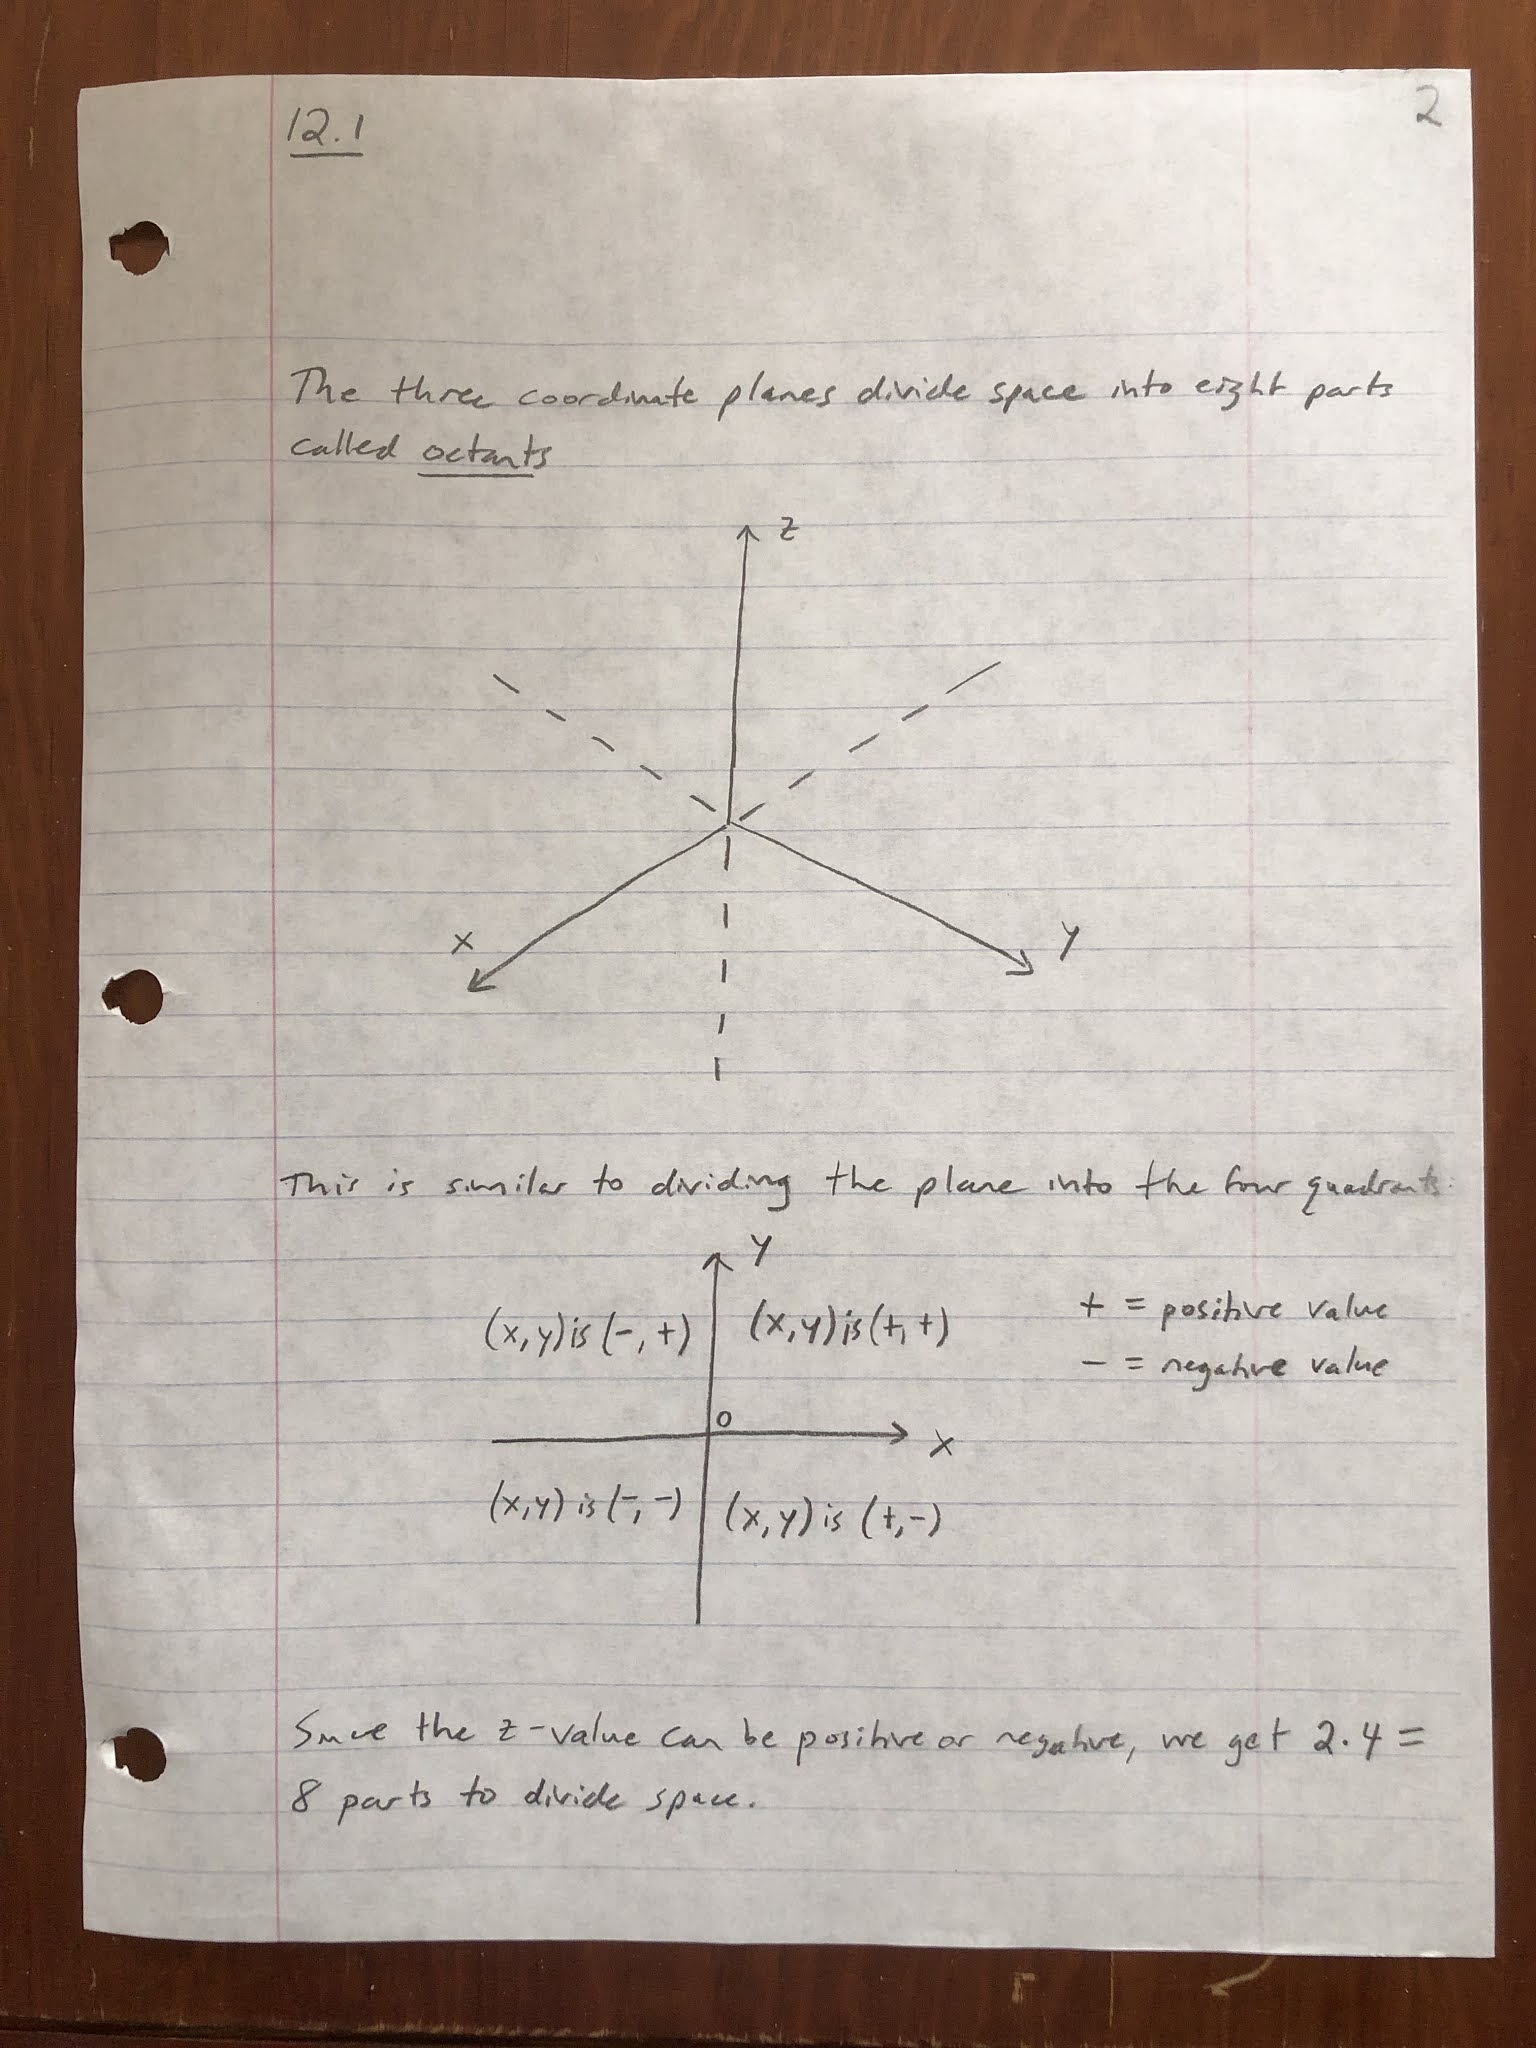 12.1
2
The three coordinate planes divide space into eight parts
called octants
z
x
y
This is similar to dividing the plane into the four quadrants.
y
(x,y) is (-,+)
(x,y) is (+,+)
+ = positive value
- = negative value
0
x
(x,y) is (-,-)
(x,y) is (+,-)
Since the z-value can be positive or negative, we get 2·4 =
8 parts to divide space.